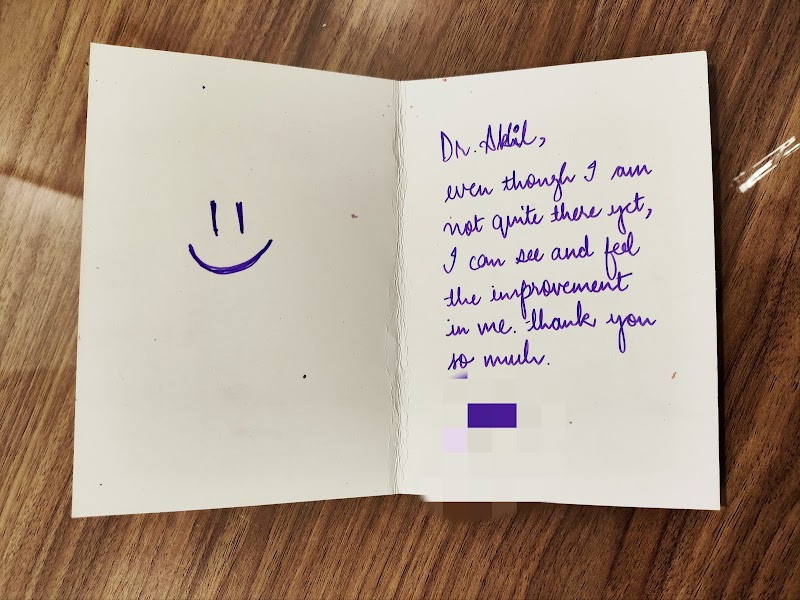 Dr. Akhil,
even though I am
not quite there yet,
I can see and feel
the improvement
in me. thank you
so much.